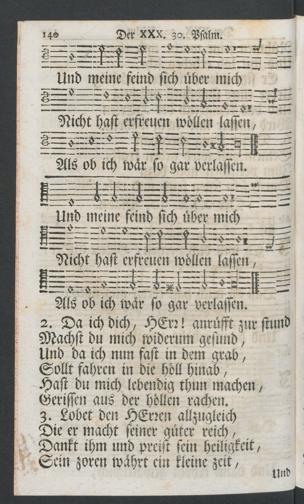 140 Der XXX. 30. Psalm.
Und meine feind sich über mich
Nicht hast erfreuen wöllen lassen,
Als ob ich wär so gar verlassen.
Und meine feind sich über mich
Nicht hast erfreuen wöllen lassen,
Als ob ich wär so gar verlassen.
2. Da ich dich, HErr! anrüfft zur stund
Machst du mich widerum gesund,
Und da ich nun fast in dem grab,
Sollt fahren in die höll hinab,
Hast du mich lebendig thun machen,
Gerissen aus der höllen rachen.
3. Lobet den HErren allzugleich
Die er macht seiner güter reich,
Dankt ihm und preist sein heiligkeit,
Sein zoren währt ein kleine zeit,
Und